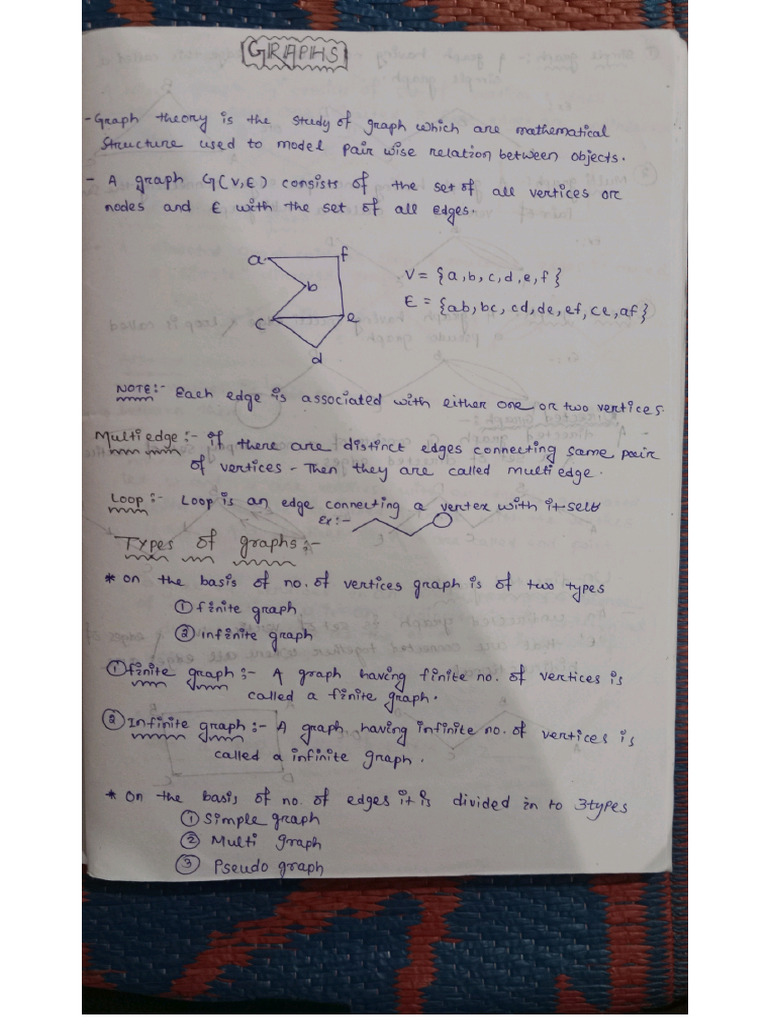 GRAPHS
- Graph theory is the study of graph which are mathematical
structure used to model pair wise relation between objects.
- A graph G(V,E) consists of the set of all vertices or
nodes and E with the set of all edges.
a f
b
c e
d
V = {a,b,c,d,e,f}
E = {ab, bc, cd, de, ef, ce, af}
NOTE:- Each edge is associated with either one or two vertices.
Multi edge:- if there are distinct edges connecting same pair
of vertices - Then they are called multi edge.
Loop:- Loop is an edge connecting a vertex with it self
Ex:-
Types of graphs:-
* on the basis of no. of vertices graph is of two types
① finite graph
② infinite graph
① finite graph:- A graph having finite no. of vertices is
called a finite graph.
② Infinite graph:- A graph having infinite no. of vertices is
called a infinite graph.
* On the basis of no. of edges it is divided in to 3 types
① Simple graph
② Multi graph
③ Pseudo graph